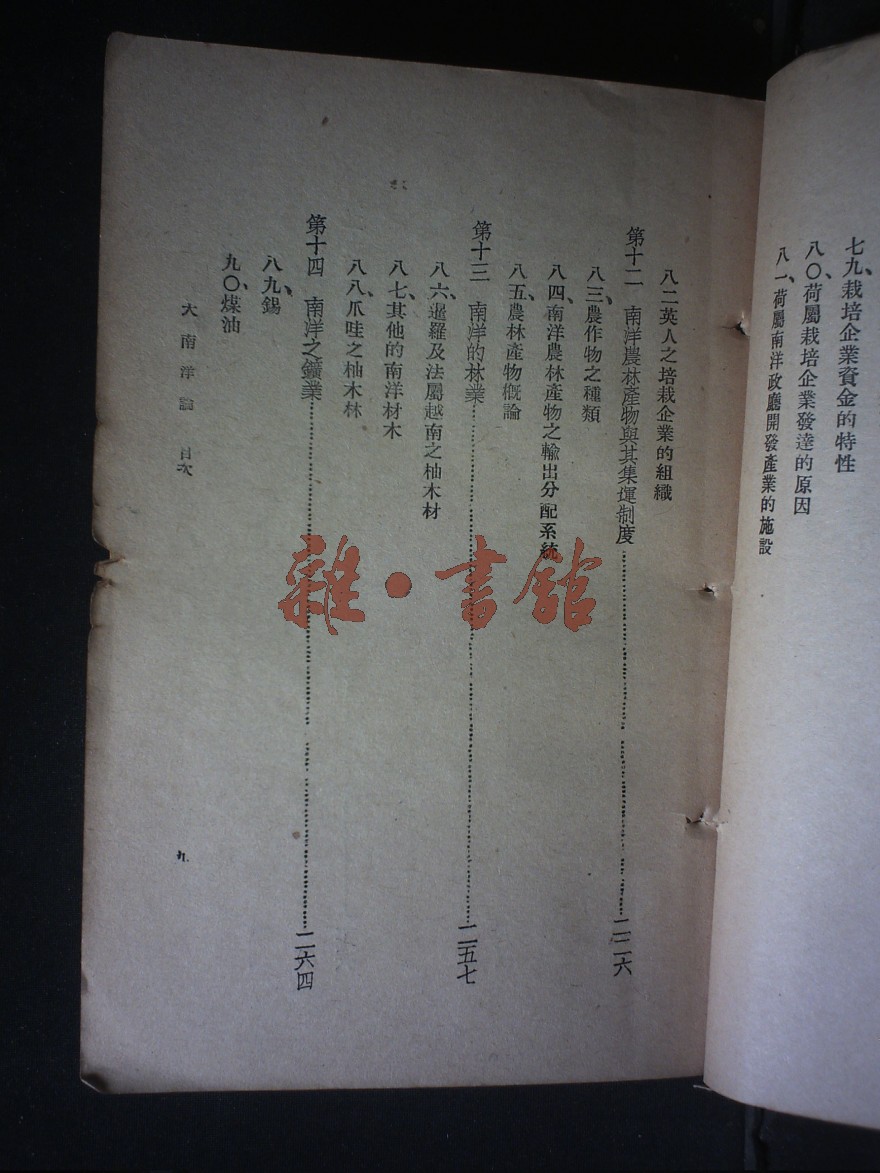 七九、栽培企業資金的特性
八〇、荷屬栽培企業發達的原因
八一、荷屬南洋政廳開發產業的施設
八二英人之培栽企業的組織
第十二 南洋農林產物與其集運制度……二二六
八三、農作物之種類
八四、南洋農林產物之輸出分配系統
八五、農林產物概論
第十三 南洋的林業……二五七
八六、暹羅及法屬越南之柚木材
八七、其他的南洋材木
八八、爪哇之柚木林
第十四 南洋之鑛業……二六四
八九、錫
九〇、煤油
大南洋論 目次
九
雜·書館